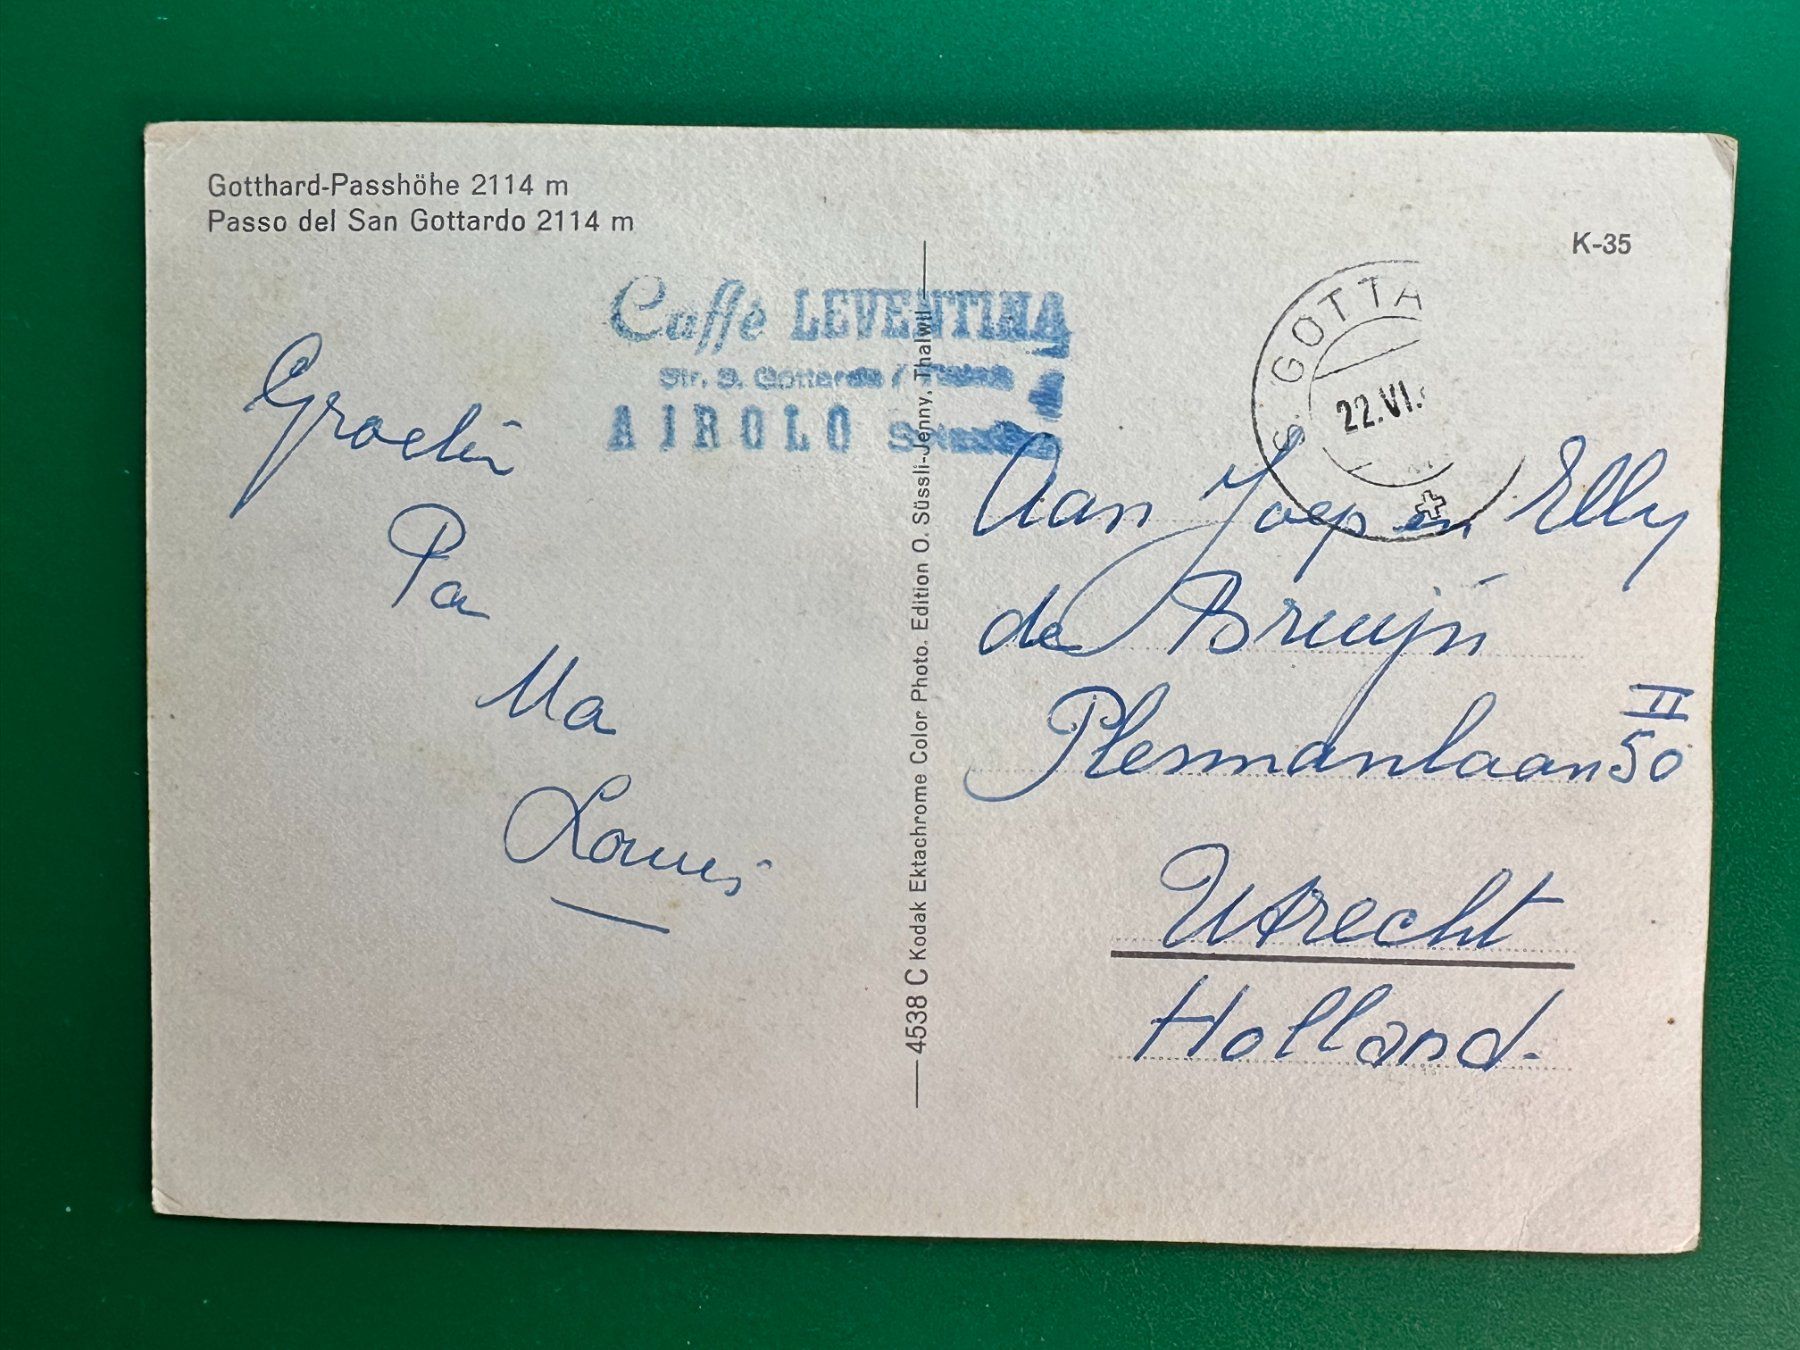 Gotthard-Passhöhe 2114 m
Passo del San Gottardo 2114 m
K-35
Caffè LEVENTINA
Str. S. Gottardo /
AIROLO
S. GOTTA
22.VI.
Groetin
Pa
Ma
Louis
4538 C Kodak Ektachrome Color Photo. Edition O. Süssli-Jenny, Thalwil
Aan Joep en Elly
de Bruijn
II
Plesmanlaan 50
Utrecht
Holland.